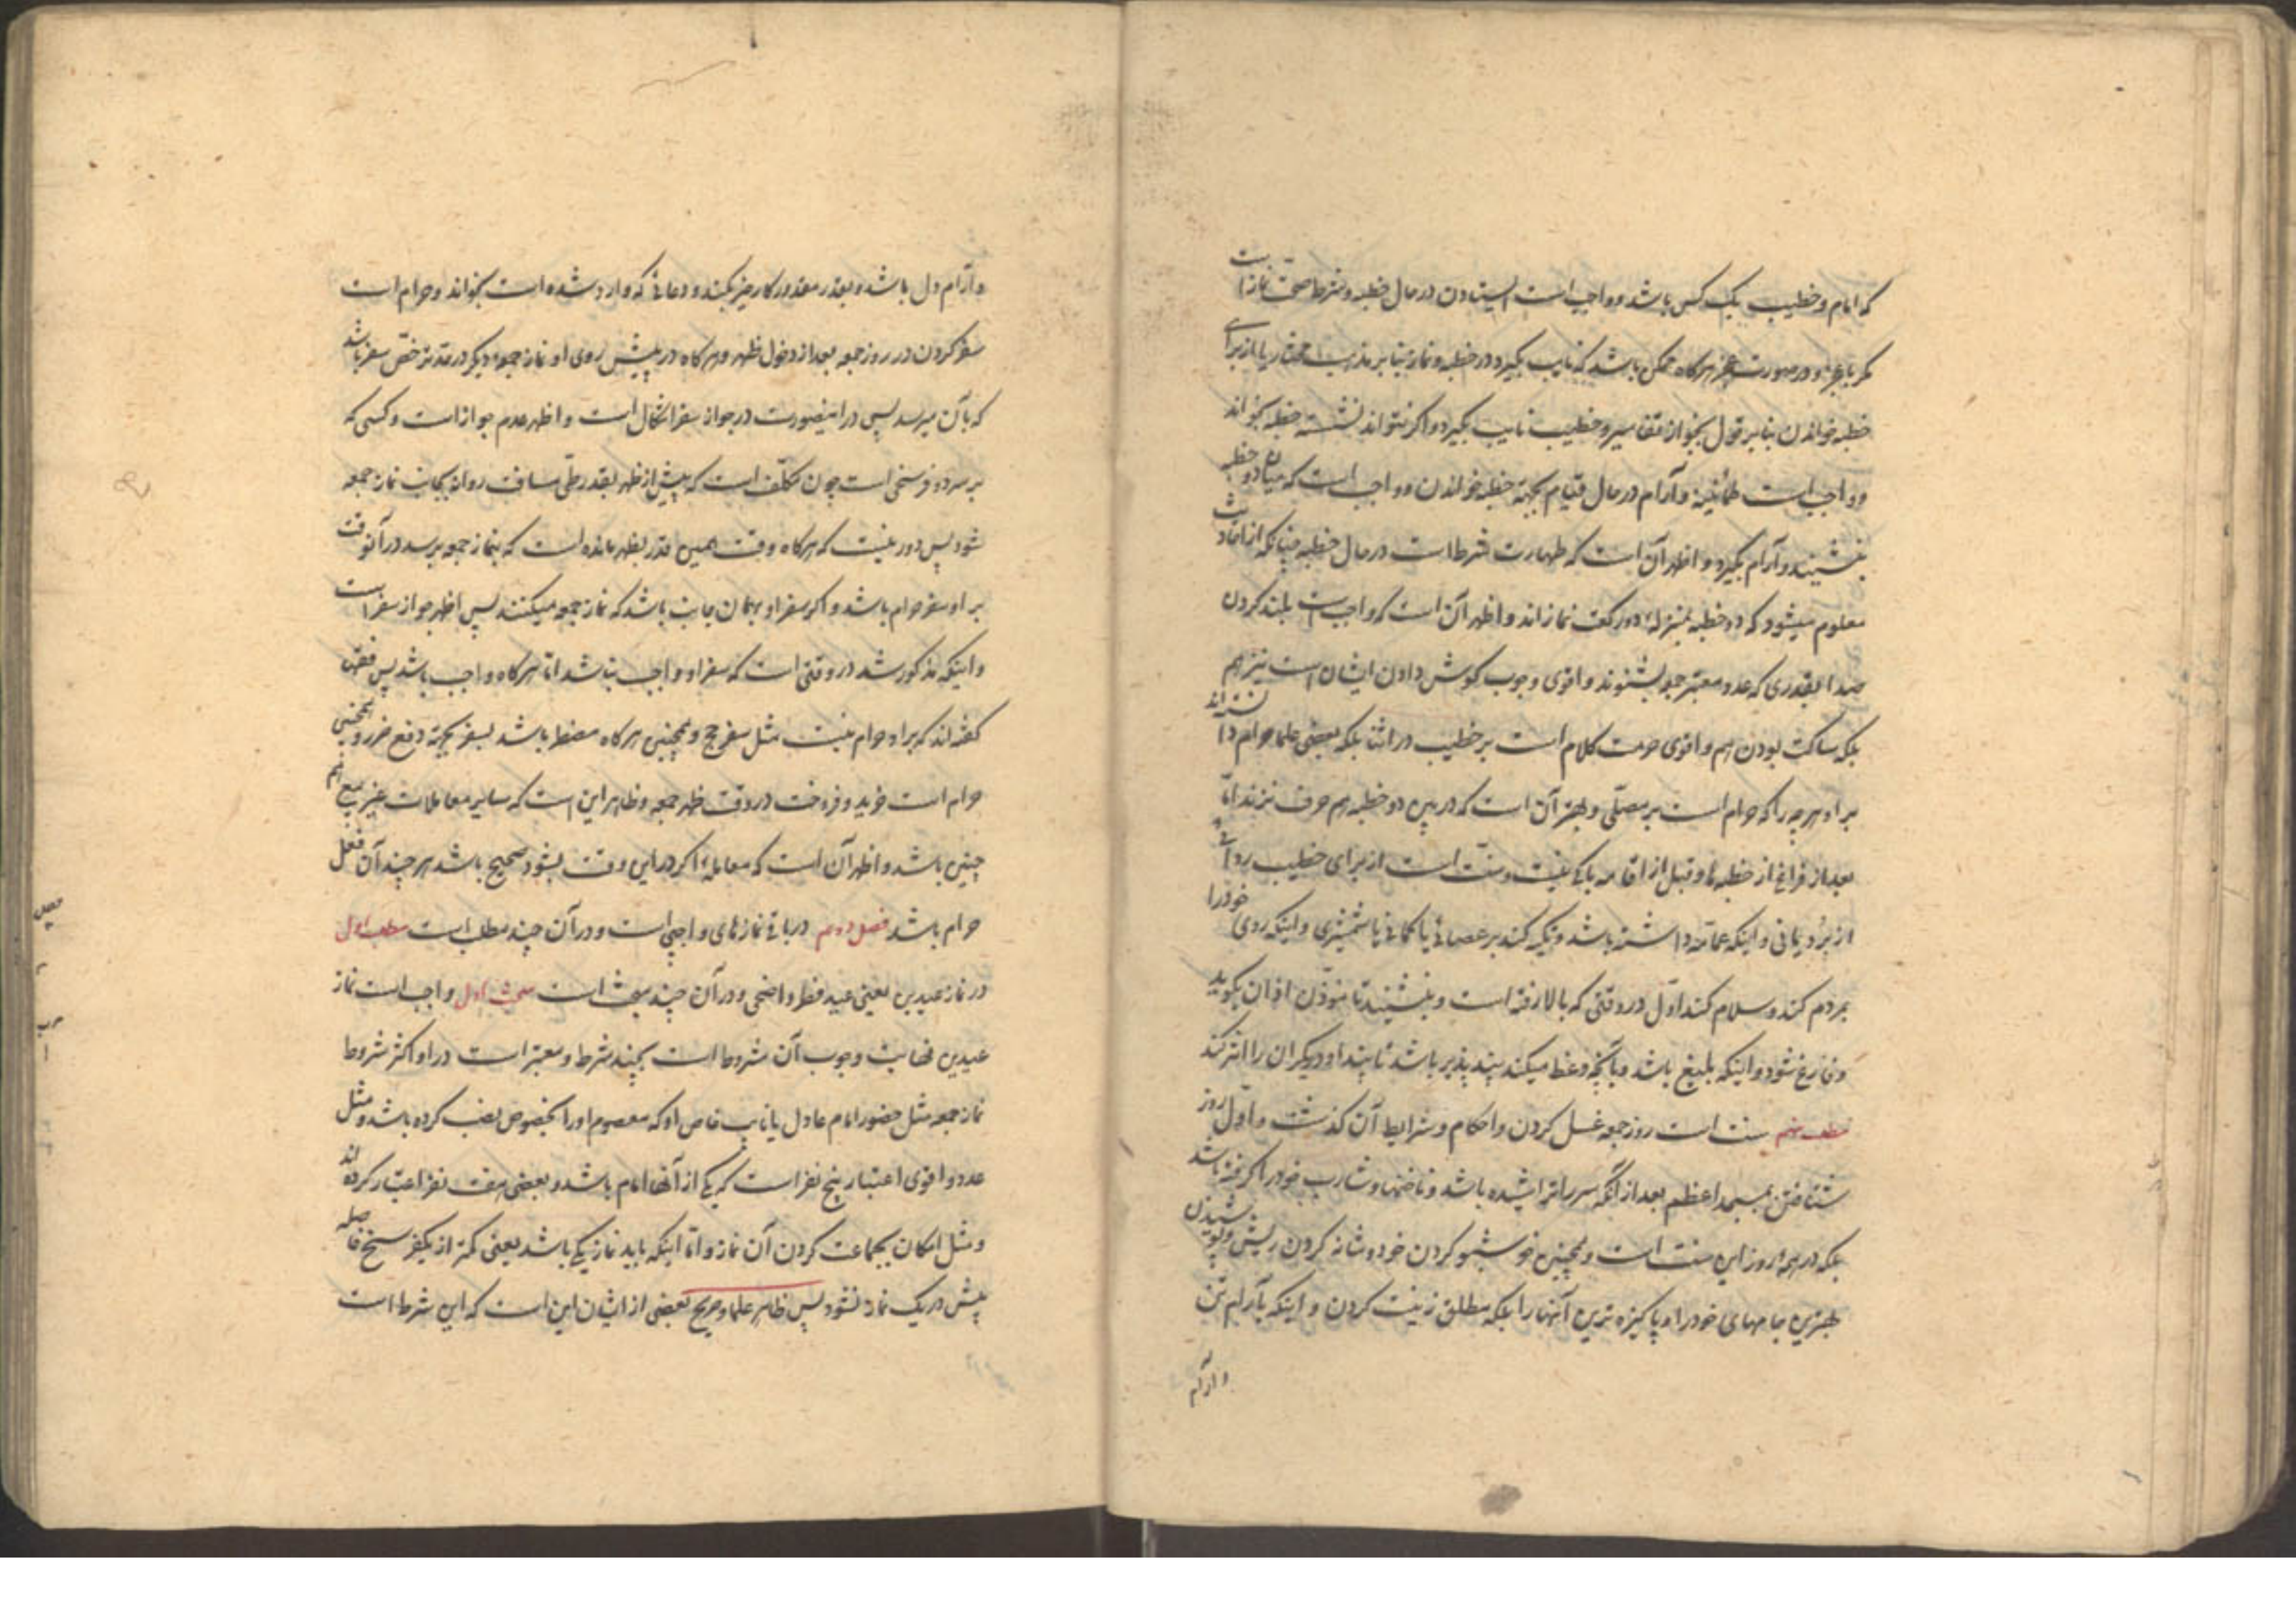 که امام و خطیب یک کس باشد و واجب است ایستادن در حال خطبه و شرط صحت نماز است
مگر با عجز و در صورت عجز هرگاه ممکن باشد که نایب بگیرد در خطبه و نماز بنا بر مذهب مختار یا از برای
خطبه خواندن بنا بر قول بجواز تغایر و خطیب نایب بگیرد و اگر نتواند نشسته خطبه بخواند
و واجب است طمأنینه و آرام در حال قیام بجهة خطبه خواندن و واجب است که میان دو خطبه
بنشیند و آرام بگیرد و اظهر آن است که طهارت شرط است در حال خطبه چنانکه از احادیث
معلوم میشود که دو خطبه بمنزلهٔ دو رکعت نماز اند و اظهر آن است که واجب است بلند کردن
صدا بقدری که عدد معتبر جمعه بشنوند و اقوی وجوب گوش دادن ایشان است نیز هم
بلکه ساکت بودن هم و اقوی حرمت کلام است بر خطیب در اثنا بلکه بعضی علما حرام دانسته‌اند
بر او هر چه را که حرام است بر مصلّی و بهتر آن است که در بین دو خطبه هم حرف نزند امّا
بعد از فراغ از خطبه‌ها و قبل از اقامه باکی نیست و سنّت است از برای خطیب ردائی
از بُرد یمانی و اینکه عمامه داشته باشد و تکیه کند بر عصائی یا کمانی یا شمشیری و اینکه روی خود را
بمردم کند و سلام کند اوّل در وقتی که بالا رفته است و بنشیند تا مؤذّن اذان بگوید
و فارغ شود و اینکه بلیغ باشد و بآنچه وعظ میکند پند پذیر باشد تا پند او دیگران را اثر کند
مطلب سنت است روز جمعه غسل کردن و احکام و شرایط آن گذشت و اوّل روز
شتافتن بمسجد اعظم بعد از آنکه سر را تراشیده باشد و ناخنها و شارب خود را گرفته باشد
بلکه در همهٔ روز این سنت است و همچنین خوشبو کردن خود و شانه کردن ریش و پوشیدن
بهترین جامهای خود را و پاکیزه ترین آنها را بلکه مطلق زینت کردن و اینکه بآرام تن
و آرام
و آرام دل باشد و بقدر مقدور کار خیر بکند و دعائی که وارد شده است بخواند و حرام است
سفر کردن در روز جمعه بعد از دخول ظهر و هرگاه در پیش روی او نماز جمعهٔ دیگر در حد ترخّص سفر باشد
که بآن میرسد پس در اینصورت در جواز سفر اشکال است و اظهر عدم جواز است و کسی که
بر سر دو فرسخی است چون مکلّف است که پیش از ظهر بقدر طیّ مسافت روانه بجانب نماز جمعه
شود پس دور نیست که هرگاه وقت همین قدر بظهر مانده است که بنماز جمعه برسد در آنوقت
بر او سفر حرام باشد و اگر سفر او بهمان جانب باشد که نماز جمعه میکنند پس اظهر جواز سفر است
و اینکه مذکور شد در وقتی است که سفر او واجب نباشد امّا هرگاه واجب باشد پس فقها
گفته‌اند که بر او حرام نیست مثل سفر حج و همچنین هرگاه مضطر باشد بسفر بجهة دفع ضرر و همچنین
حرام است خرید و فروخت در وقت ظهر جمعه و ظاهر این است که سایر معاملات غیر بیع هم
چنین باشد و اظهر آن است که معامله اگر در این وقت بشود صحیح باشد هر چند آن فعل
حرام باشد فصل دوم در باقی نمازهای واجبی است و در آن چند مطلب است مطلب اول
در نماز عیدین یعنی عید فطر و اضحی و در آن چند مبحث است مبحث اول واجب است نماز
عیدین نهایت وجوب آن مشروط است بچند شرط و معتبر است در او اکثر شروط
نماز جمعه مثل حضور امام عادل یا نایب خاص او که معصوم او را بخصوص نصب کرده باشد و مثل
عدد و اقوی اعتبار پنج نفر است که یکی از آنها امام باشد و بعضی هفت نفر اعتبار کرده‌اند
و مثل امکان بجماعت کردن آن نماز و امّا اینکه باید نماز یکی باشد یعنی کمتر از یکفرسخ فاصله
بیش در یک نماز نشود پس ظاهر علما و صریح بعضی از ایشان این است که این شرط است